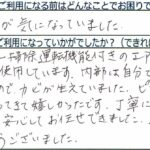 ご利用になる前はどんなことでお困りで
が気になっていました。
ご利用になっていかがでしたか？（できれ
掃除運転機能付きのエア
使用しています。内部は自分で
カビが生えていました。ピ
てきて嬉しかったです。丁寧に
安心してお任せできました。
うございました。